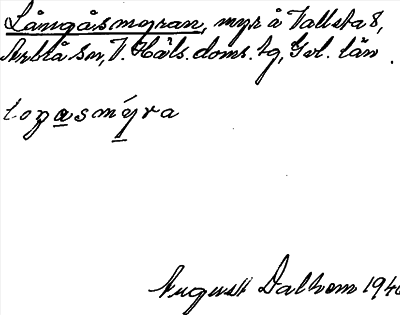 Långåsmyran, myr å Vallsta 8,
Arbrå sn, V. Häls. doms. tg, Gvl. län.
logasmýra
August Dalhem 194